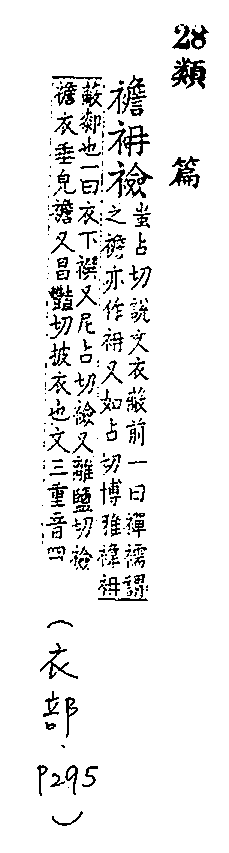 28類篇
襜袡襝蚩占切說文衣蔽前一曰襌襦謂
之襜亦作袡又如占切博雅褘袡
蔽䣛也一曰衣下襈又尼占切襝又離鹽切襝
襜衣垂皃襜又昌豔切披衣也文三重音四
(衣部.P295)